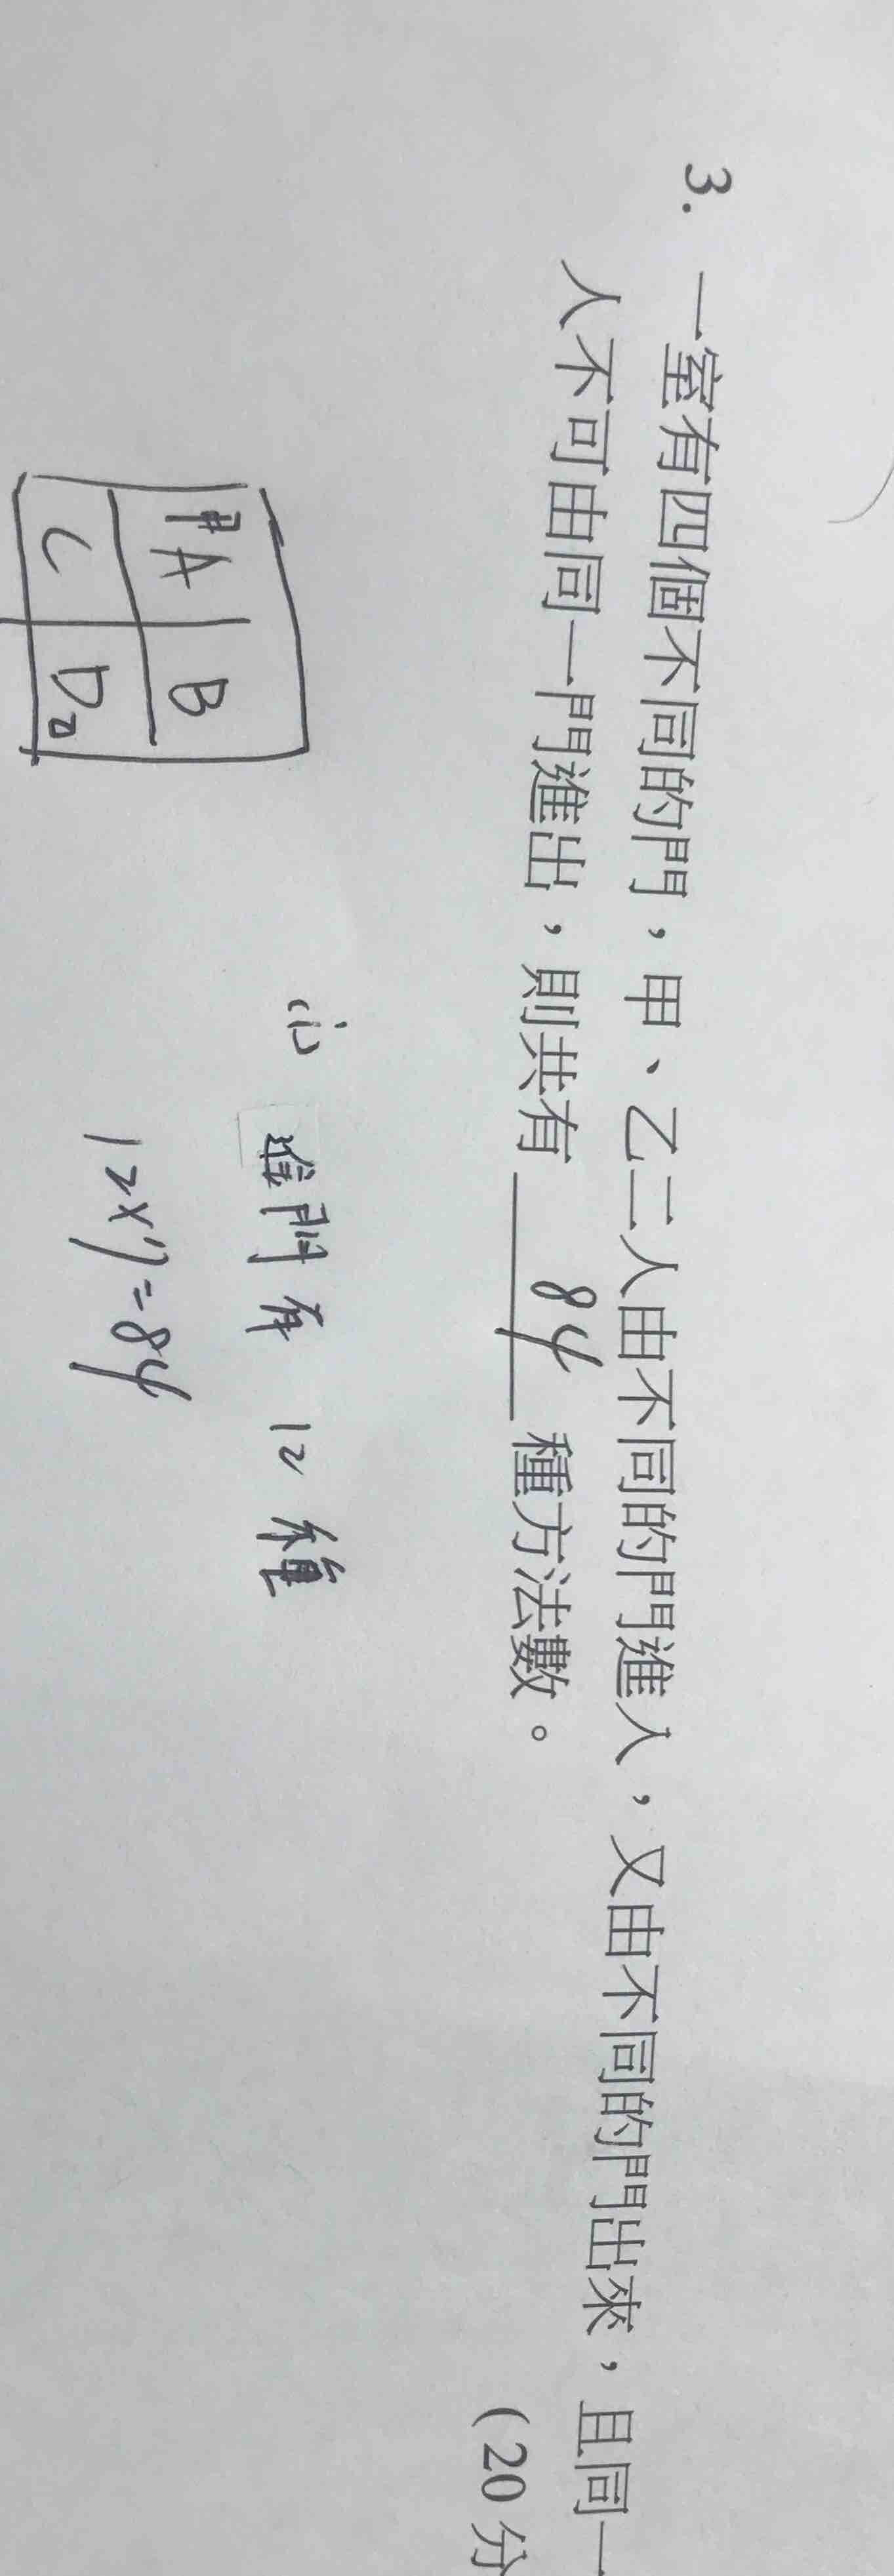 3. 一室有四個不同的門，甲、乙二人由不同的門進入，又由不同的門出來，且同一
人不可由同一門進出，則共有 84 種方法數。
(20 分
(i) 進門有 12 種
12×7=84
A B
C D